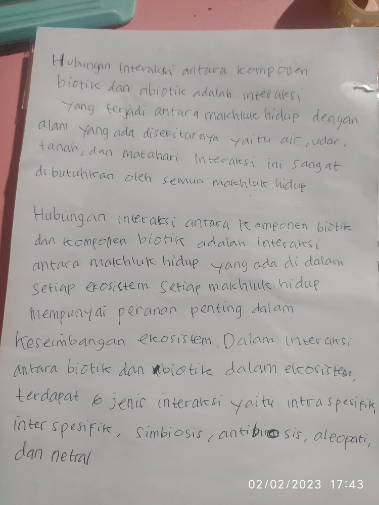 Hubungan interaksi antara komponen
biotik dan abiotik adalah interaksi
yang terjadi antara makhluk hidup dengan
alam yang ada disekitarnya yaitu air, udar,
tanah, dan matahari. Interaksi ini sangat
dibutuhkan oleh semua makhluk hidup
Hubungan interaksi antara komponen biotik
dan komponen biotik adalah interaksi
antara makhluk hidup yang ada di dalam
setiap ekosistem setiap makhluk hidup
mempunyai peranan penting dalam
keseimbangan ekosistem. Dalam interaksi
antara biotik dan biotik dalam ekosistem,
terdapat 6 jenis interaksi yaitu intraspesifik,
interspesifik, simbiosis, antibiosis, aleopati,
dan netral
02/02/2023 17:43